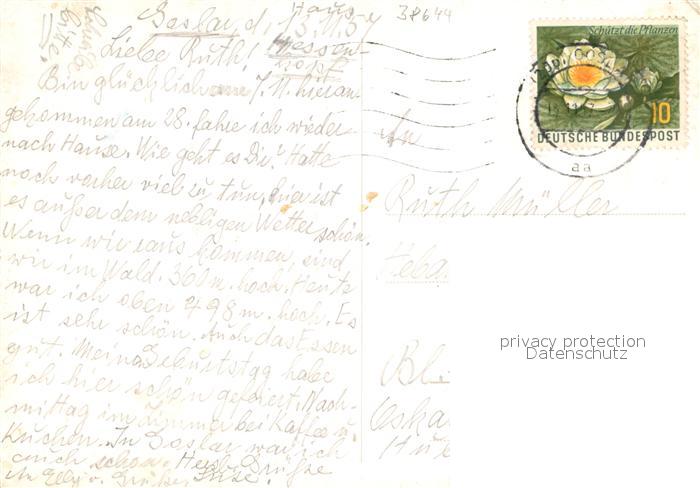 Schreibe
bitte.
Goslar, d. 13.11.57
Haus
Hessen-
kopf
38644
Liebe Ruth!
Bin glücklich am 7. 11. hier an-
gekommen am 28. fahre ich wieder
nach Hause. Wie geht es Dir? Hatte
noch vorher viel zu tun, hier ist
es außer dem nebligen Wetter schön.
Wenn wir raus kommen, sind
wir im Wald. 360 m. hoch. Heute
war ich oben 498 m. hoch. Es
ist sehr schön. Auch das Essen
gut. Meinen Geburtstag habe
ich hier schön gefeiert. Nach-
mittag im Zimmer bei Kaffee u.
Kuchen. In Goslar war ich
auch schon. Herzl. Grüße
Schützt die Pflanzen
10
DEUTSCHE BUNDESPOST
aa
An
Ruth Müller
privacy protection
Datenschutz